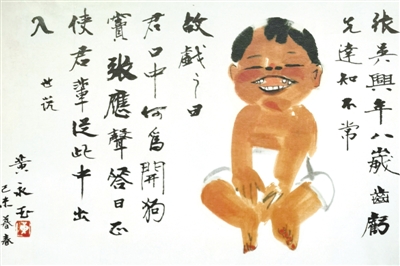 張吴興年八歲齒虧
先達知不常
故戲之曰
君口中何爲開狗
竇張應聲答曰正
使君輩從此中出
入
世説
黄永玉
己未暮春